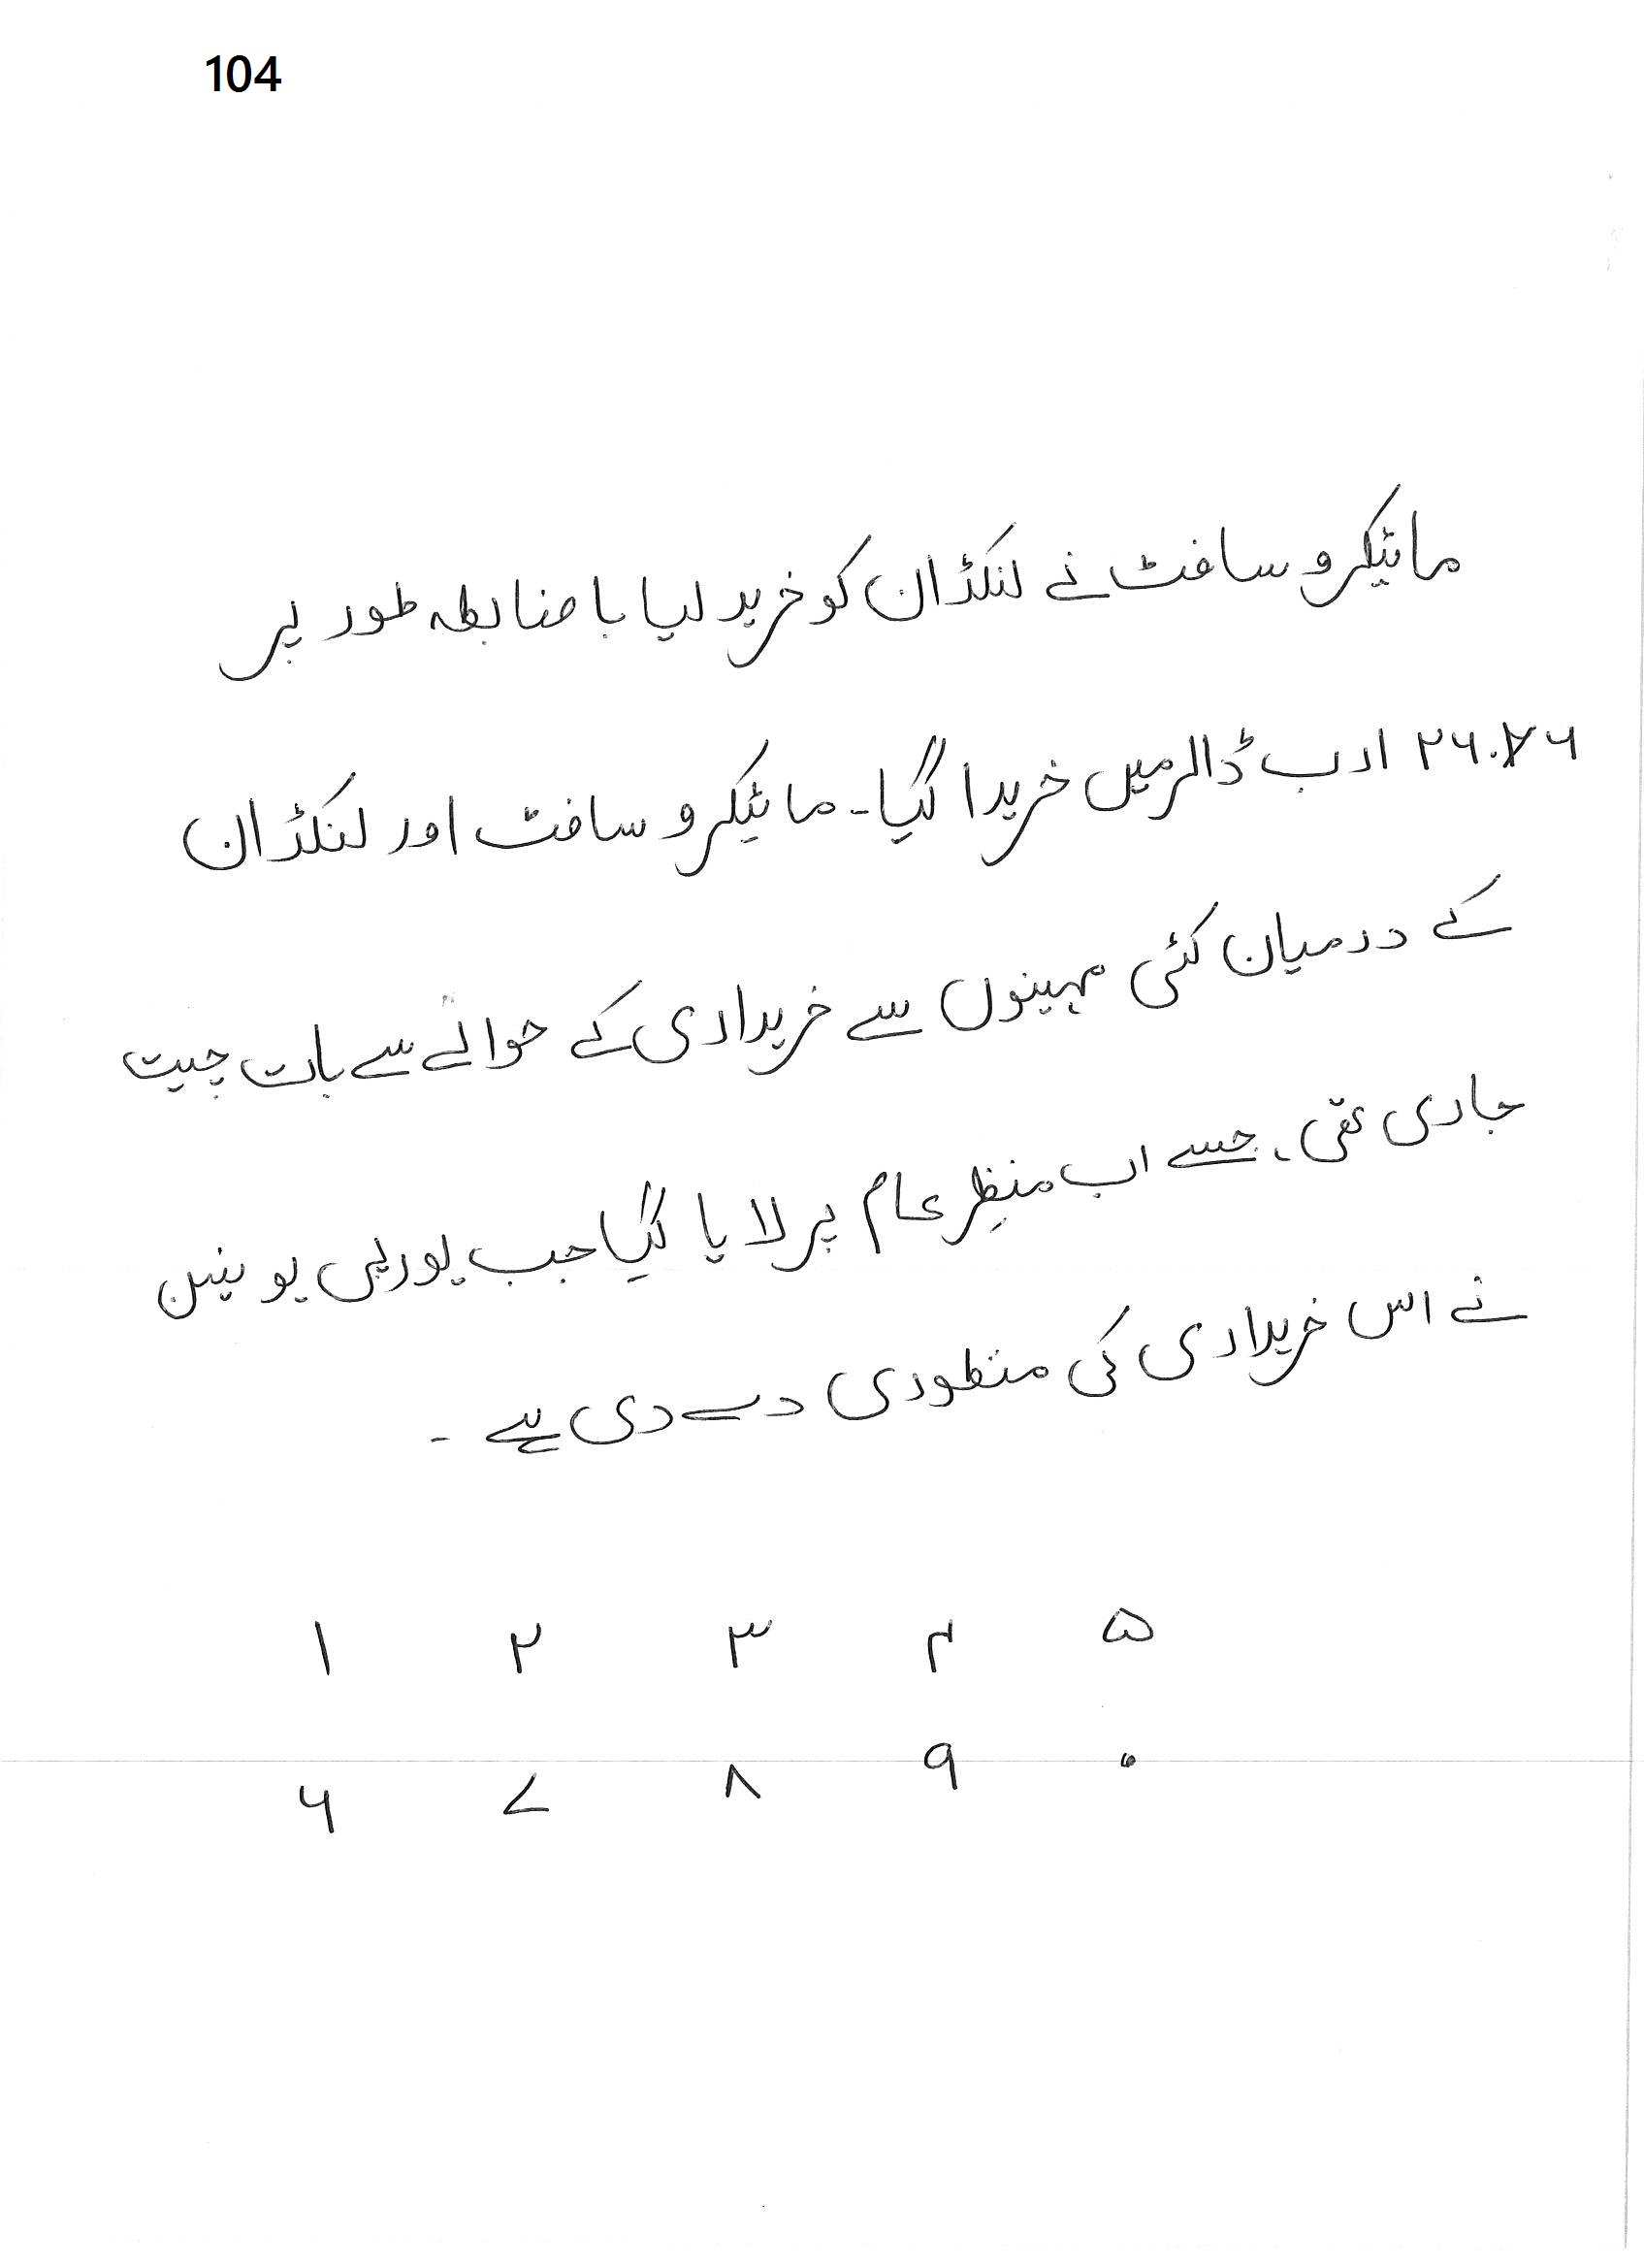 104
مائیکرو سافٹ نے لنکڈان کو خرید لیا باضابطہ طور پر
۲۶.۲۶ ارب ڈالر میں خریدا گیا۔ مائیکرو سافٹ اور لنکڈان
کے درمیان کئی مہینوں سے خریداری کے حوالے سے بات چیت
جاری تھی، جسے اب منظرِ عام پر لایا گیا جب یورپی یونین
نے اس خریداری کی منظوری دے دی ہے۔
۱ ۲ ۳ ۴ ۵
۶ ۷ ۸ ۹ ۰